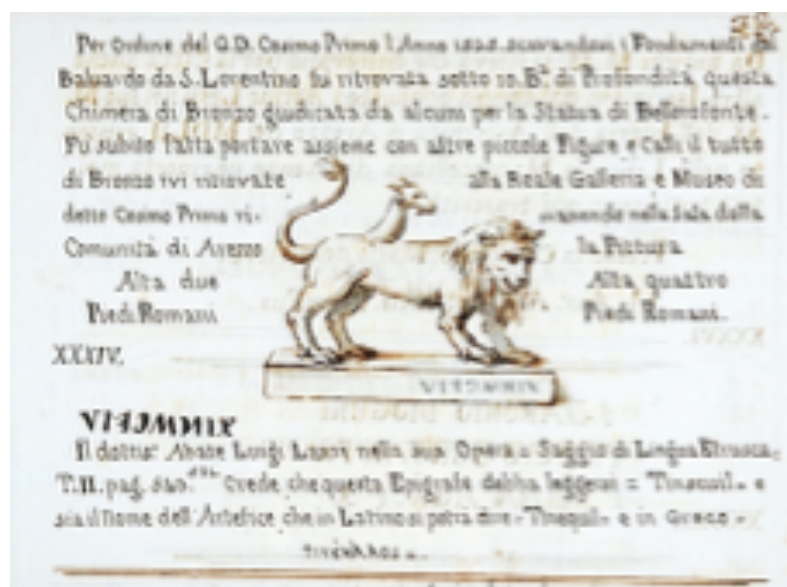 Per Ordine del G.D. Cosimo Primo l'Anno scavandosi i Fondamenti del
Baluardo da S. Lorentino fu ritrovata sotto 10. B.ª di Profondità questa
Chimera di Bronzo giudicata da alcuni per la Statua di Bellerofonte.
Fù subito fatta portare assieme con altre piccole Figure e il tutto
di Bronzo ivi ritrovate alla Reale Galleria e Museo di
detto Cosimo Primo ri- manendo nella Sala della
Comunità di Arezzo la Pittura
Alta due Alta quattro
Piedi Romani Piedi Romani.
XXXIV.
Il dottis.º Abate Luigi Lanzi nella sua Opera = Saggio di Lingua Etrusca =
T. II. pag. Crede che questa Epigrafe debba leggersi = Tinscuil = e
sia il Nome dell'Artefice che in Latino si potrà dire = = e in Greco =